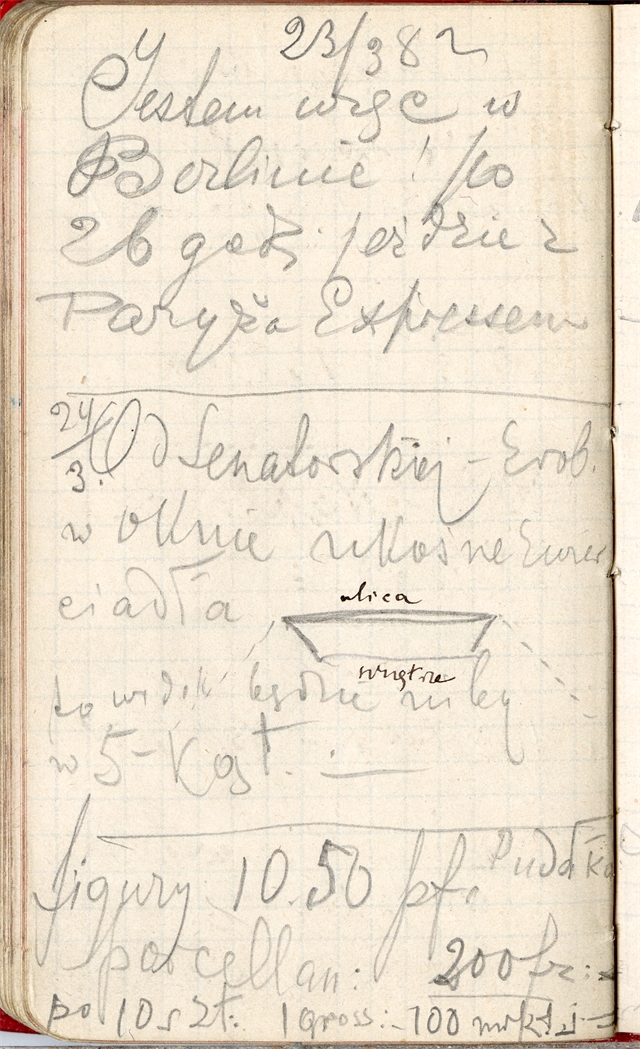 23/3 82
Jestem więc w
Berlinie! po
26 godz. jeździe z
Paryża Expressem
24/3. Od Senatorskiej - Zrob.
w oknie ukośne Zwier
ciadła
ulica
wnętrze
to widok będzie niby
w 5-Kąt. —
figury 10.50 pf. Pudałka
porcellan: 200 fr:
po 10 szt. 1 gross: